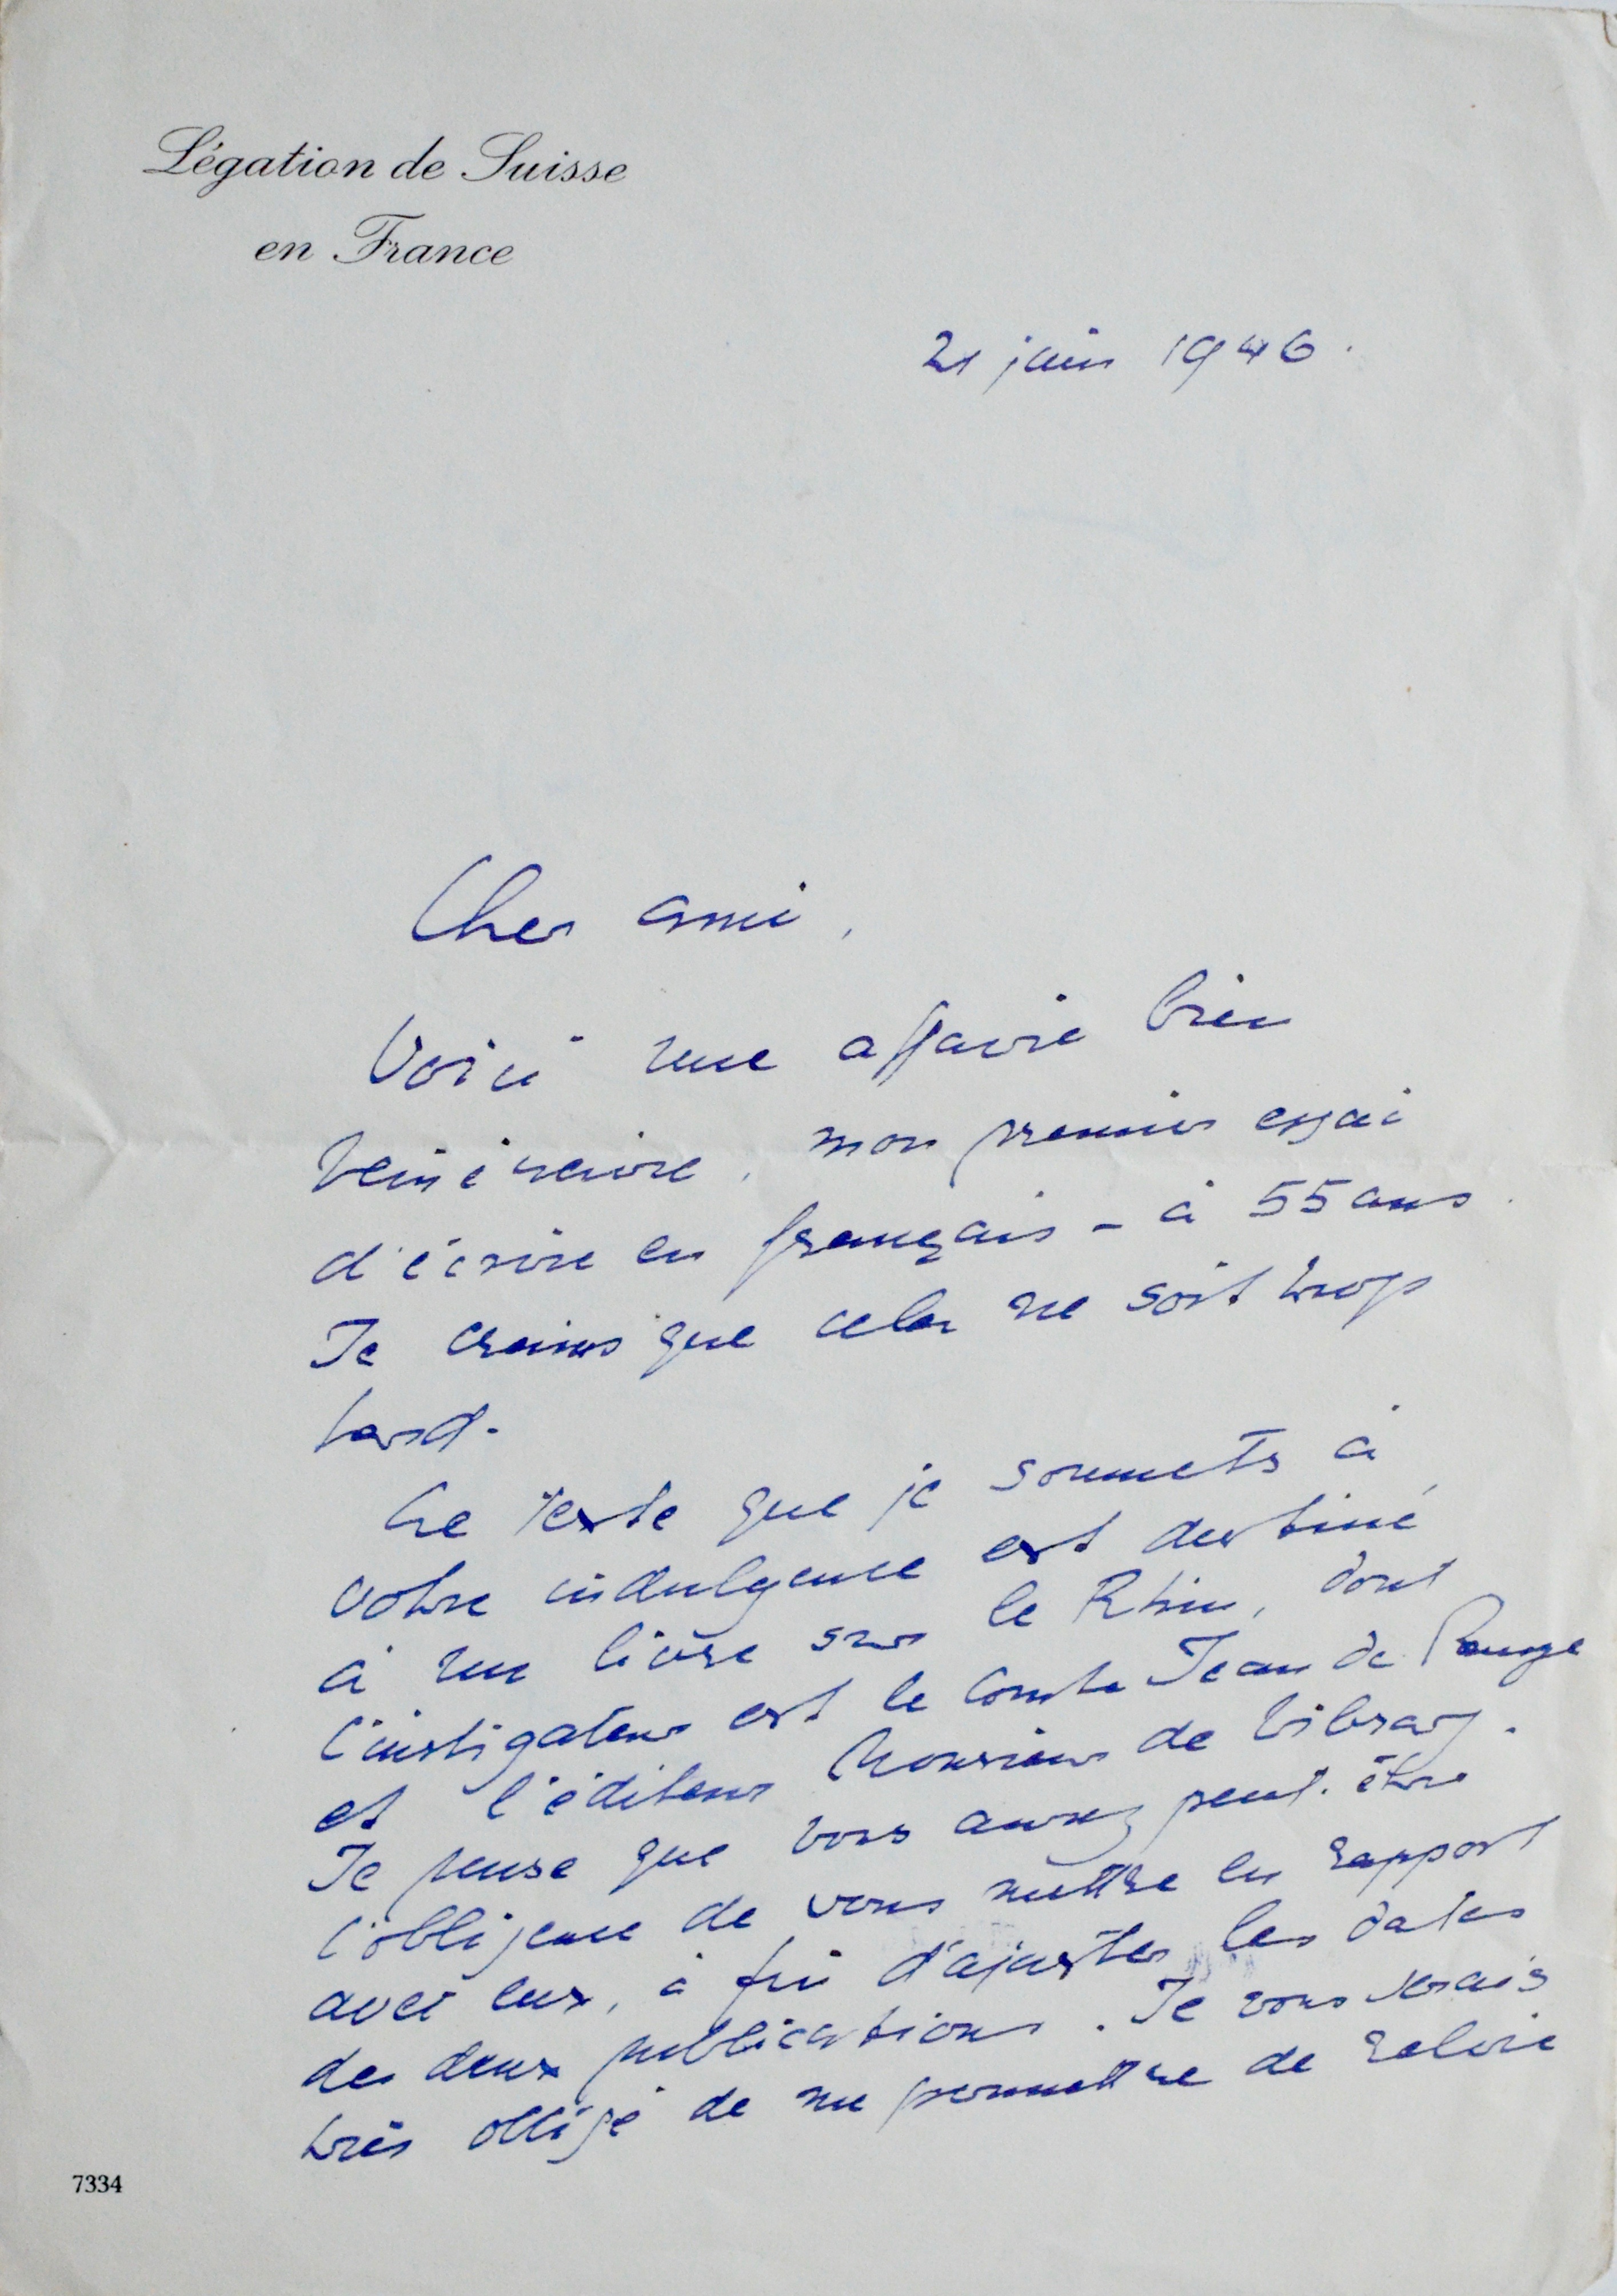 Légation de Suisse
en France
21 juin 1946.
Cher ami,
Voici une affaire bien
téméraire, mon premier essai
d'écrire en français – à 55 ans.
Je crains que cela ne soit trop
tard.
Le texte que je soumets à
votre indulgence est destiné
à un livre sur le Rhin, dont
l'instigateur est le Comte Jean de Pange
et l'éditeur Monsieur de Vibray.
Je pense que vous aurez peut-être
l'obligeance de vous mettre en rapport
avec eux, à fin d'ajuster les dates
des deux publications. Je vous serais
très obligé de me permettre de relire
7334